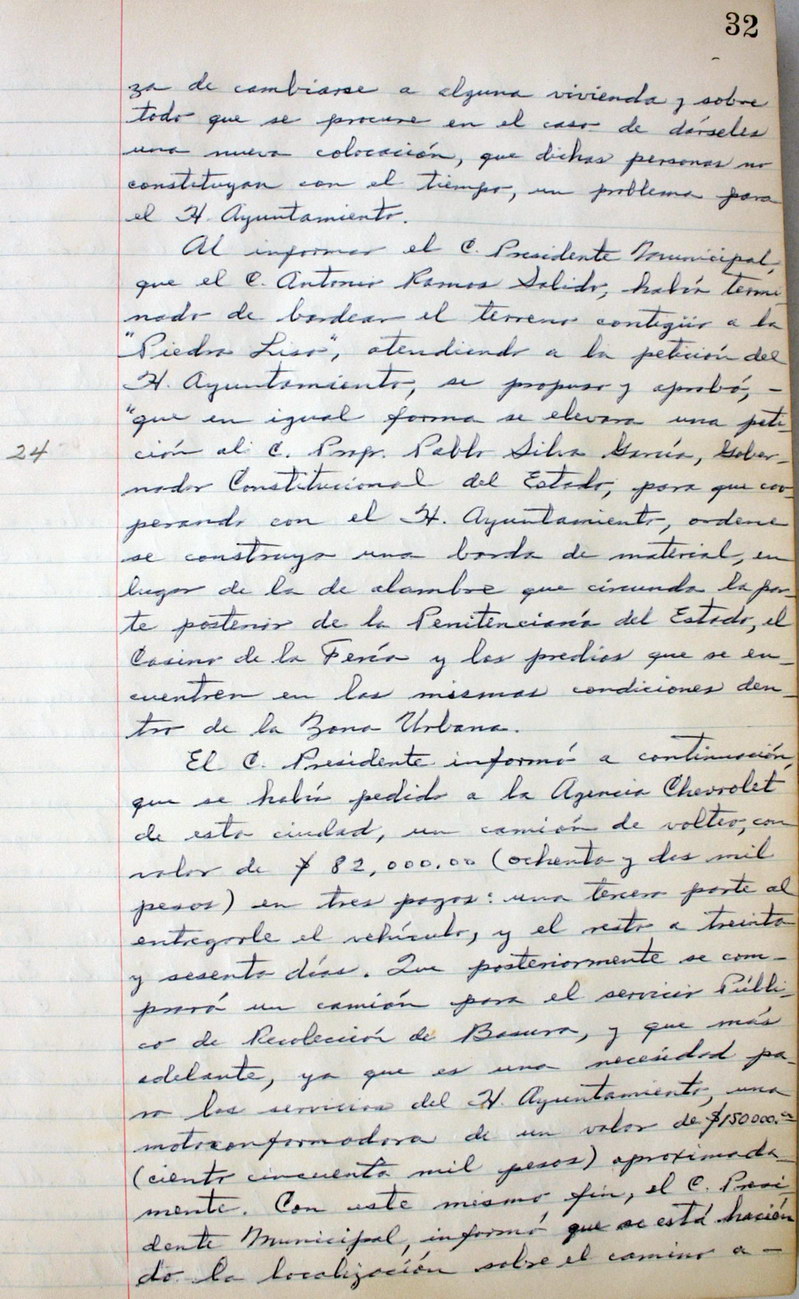 32
za de cambiarse a alguna vivienda y sobre
todo que se procure en el caso de dárseles
una nueva colocación, que dichas personas no
constituyan con el tiempo, un problema para
el H. Ayuntamiento.
Al informar el C. Presidente Municipal,
que el C. Antonio Ramos Salido, había termi-
nado de bardear el terreno contigüo a la
"Piedra Lisa", atendiendo a la petición del
H. Ayuntamiento, se propuso y aprobó, -
"que en igual forma se elevara una peti-
24
ción al C. Profr. Pablo Silva García, Gober-
nador Constitucional del Estado, para que coo-
perando con el H. Ayuntamiento, ordene
se construya una barda de material, en
lugar de la de alambre que circunda la par-
te posterior de la Penitenciaría del Estado, el
Casino de la Feria y los predios que se en-
cuentren en las mismas condiciones den-
tro de la Zona Urbana.
El C. Presidente informó a continuación,
que se había pedido a la Agencia Chevrolet
de esta ciudad, un camión de volteo, con
valor de $ 82,000.00 (ochenta y dos mil
pesos) en tres pagos: una tercera parte al
entregarle el vehículo, y el resto a treinta
y sesenta días. Que posteriormente se com-
prará un camión para el servicio Públi-
co de Recolección de Basura, y que más
adelante, ya que es una necesidad pa-
ra los servicios del H. Ayuntamiento, una
motoconformadora de un valor de $150000.00
(ciento cincuenta mil pesos) aproximada-
mente. Con este mismo fin, el C. Presi-
dente Municipal, informó que se está hacien
do la localización sobre el camino a -